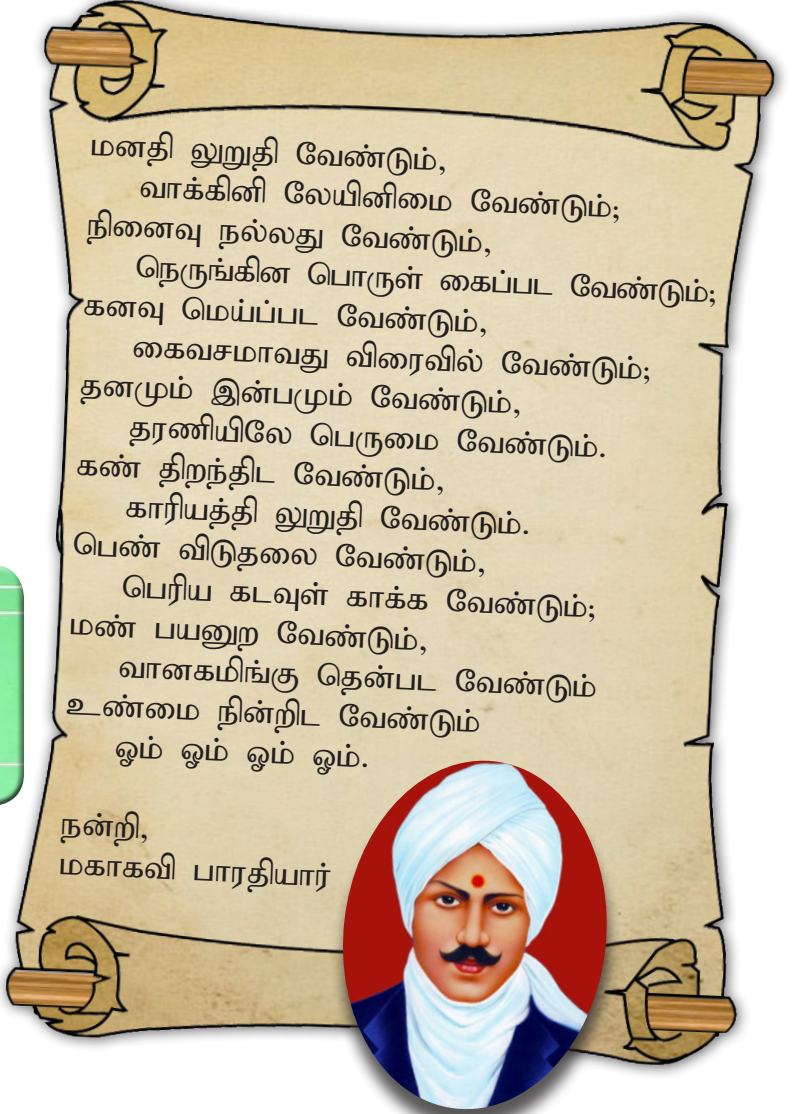 மனதி லுறுதி வேண்டும்,
வாக்கினி லேயினிமை வேண்டும்;
நினைவு நல்லது வேண்டும்,
நெருங்கின பொருள் கைப்பட வேண்டும்;
கனவு மெய்ப்பட வேண்டும்,
கைவசமாவது விரைவில் வேண்டும்;
தனமும் இன்பமும் வேண்டும்,
தரணியிலே பெருமை வேண்டும்.
கண் திறந்திட வேண்டும்,
காரியத்தி லுறுதி வேண்டும்.
பெண் விடுதலை வேண்டும்,
பெரிய கடவுள் காக்க வேண்டும்;
மண் பயனுற வேண்டும்,
வானகமிங்கு தென்பட வேண்டும்
உண்மை நின்றிட வேண்டும்
ஓம் ஓம் ஓம் ஓம்.
நன்றி,
மகாகவி பாரதியார்